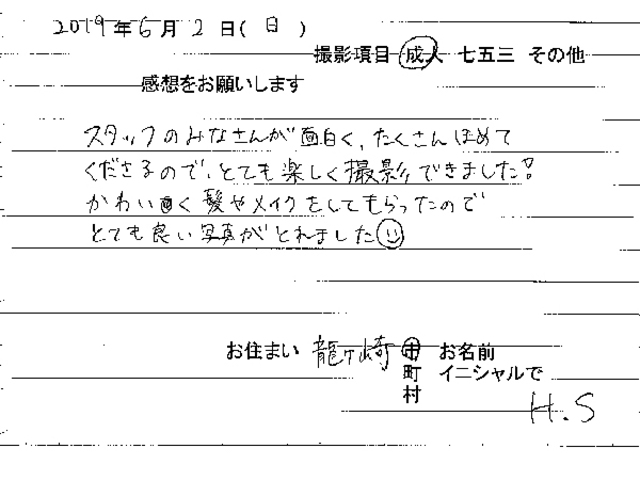 2019年6月2日(日)
撮影項目 成人 七五三 その他
感想をお願いします
スタッフのみなさんが面白く、たくさんほめて
くださるので、とても楽しく撮影できました!
かわいく髪やメイクをしてもらったので
とても良い写真がとれました☺
お住まい 龍ヶ崎 市 お名前
町 イニシャルで
村
H.S